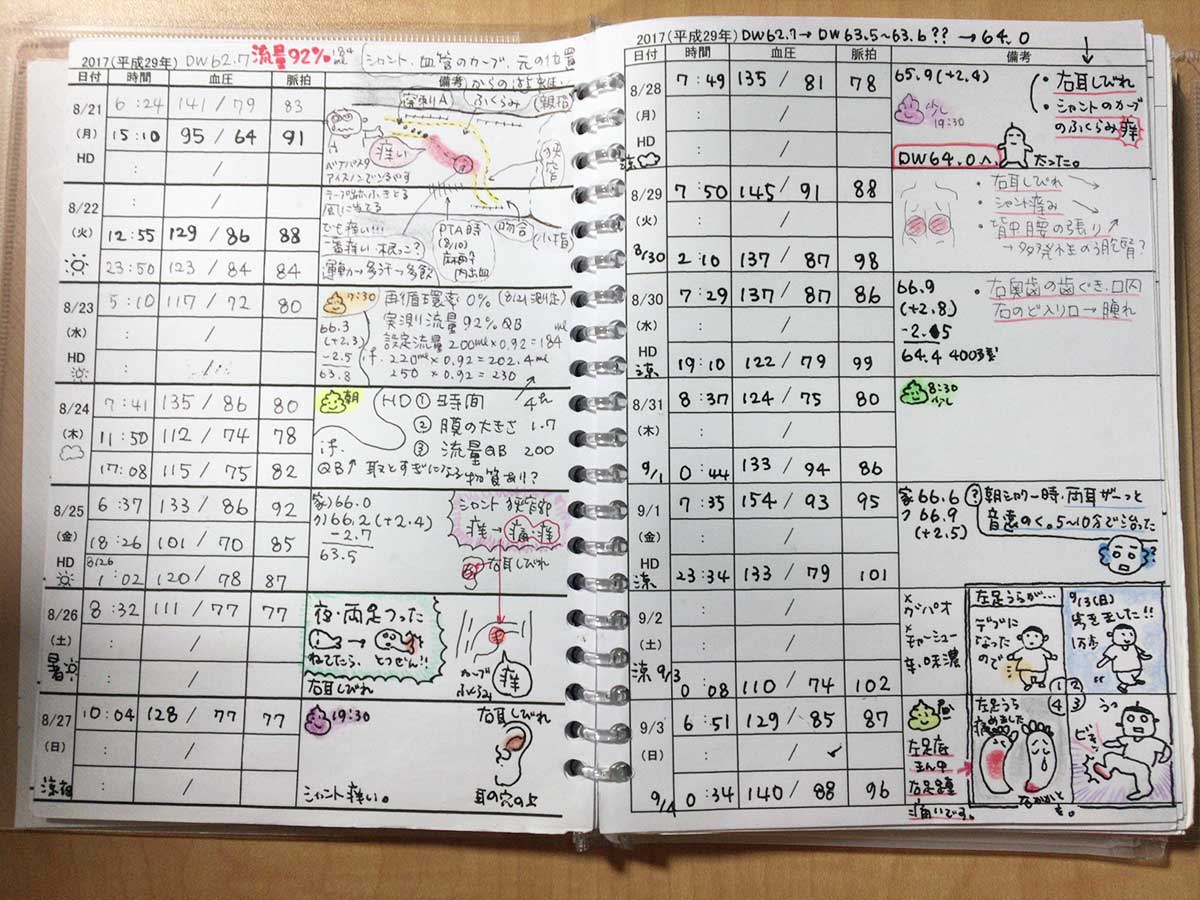 2017(平成29年) DW62.7 流量92% 184ml
シャント、血管のカーブ、元の位置
日付 時間 血圧 脈拍 備考
8/21 (月) HD
6:24 141/79 83
15:10 95/64 91
: /
穿刺A ふくらみ (親指)
痒い
狭窄
アイスノンでひやす
8/22 (火)
: /
12:55 129/86 88
23:50 123/84 84
でも痒い!!!
運動→多汗→多飲
PTA時
(8/10)
内出血
吻合
(小指)
8/23 (水) HD
5:10 117/72 80
: /
: /
7:30
66.3
(+2.3)
-2.5
63.8
再循環率 0% (8/21測定)
実測流量92% QB
設定流量 200ml×0.92=184ml
220ml×0.92=202.4ml
250×0.92=230
8/24 (木)
7:41 135/86 80
11:50 112/74 78
17:08 115/75 82
朝
HD ① 時間 4h
② 膜の大きさ 1.7
③ 流量QB 200
QB↑ 取れすぎになる物質あり?
8/25 (金) HD
6:37 133/86 92
18:26 101/70 85
8/26
1:02 120/78 87
家)66.0
ク)66.2(+2.4)
-2.7
63.5
シャント狭窄部
痒→痛痒
右耳しびれ
8/26 (土) 暑
8:32 111/77 77
: /
: /
夜・両足つった
ねてたら、とつぜん!!
右耳しびれ
カーブ
ふくらみ
痒
8/27 (日)
10:04 128/77 77
: /
: /
19:30
シャント痒い。
右耳しびれ
耳の穴の上
2017(平成29年) DW62.7→DW63.5~63.6??→64.0
日付 時間 血圧 脈拍 備考
8/28 (月) HD 涼
7:49 135/81 78
: /
: /
65.9(+2.4)
少し
19:30
DW64.0へ
・右耳しびれ
・シャントのカーブ
のふくらみ 痒
だった。
8/29 (火)
7:50 145/91 88
: /
8/30
2:10 137/87 98
・右耳しびれ
・シャント痒み
・背中腰の張り
→多発性のう胞腎?
8/30 (水) HD 涼
7:29 137/87 86
: /
19:10 122/79 99
66.9
(+2.8)
-2.5
64.4
・右奥歯の歯ぐき、口内
右のど入り口→腫れ
8/31 (木)
8:37 124/75 80
: /
9/1
0:44 133/94 86
8:30
少し
9/1 (金) HD 涼
7:35 154/93 95
: /
23:34 133/79 101
家66.6
ク66.9
(+2.5)
? 朝シャワー時、両耳ザーっと
音遠のく。5~10分で治った
9/2 (土) 涼
: /
: /
9/3
0:08 110/74 102
×
ガパオ
×
チャーシュー
辛、味濃
左足うらが…
デブに
なった
ので
①
9/3(日)
歩きました!!
1万歩
②
9/3 (日)
6:51 129/85 87
: /
9/4
0:34 140/88 96
昼
左足底
まん中
右足踵
痛いです。
④
左足うら
痛めました
右かかと
も。
③
うっ
ビキッ